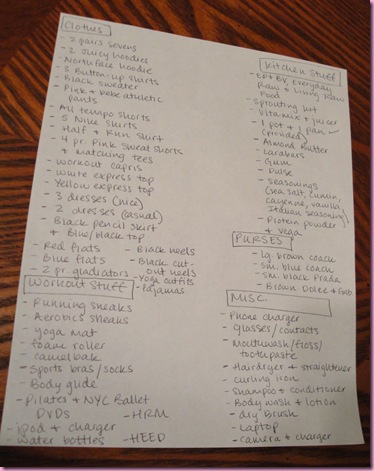 Clothes
- 2 pairs sevens
- 2 Juicy hoodies
- Northface hoodie
- 3 Button-up shirts
- Black sweater
- Pink + bebe athletic
pants
- All tempo shorts
- 5 Nike shirts
- Half + Run shirt
- 4 pr. Pink sweat shorts
+ matching tees
- Workout capris
- White express top
- Yellow express top
- 3 dresses (nice)
- 2 dresses (casual)
- Black pencil skirt
+ Blue/black top
- Red flats
- Blue flats
- 2 pr. gladiators
- Black heels
- Black cut-
out heels
- Yoga outfits
- Pajamas
Workout Stuff
- Running sneaks
- Aerobics sneaks
- Yoga mat
- foam roller
- camelbak
- Sports bras/socks
- Body glide
- Pilates + NYC Ballet
DVDs
- ipod + charger
- water bottles
- HRM
- HEED
Kitchen Stuff
- Everyday
Raw + Living Raw
Food
- Sprouting kit
- Vitamix + juicer
- 1 pot + 1 pan
(provided)
- Almond Butter
- Larabars
- Gum
- Dulse
- seasonings
(sea salt, cumin,
cayenne, vanilla,
Italian seasoning)
- Protein powder
+ vega
PURSES
- lg. brown coach
- sm. blue coach
- sm. black Prada
- Brown Dolce + Gab
MISC.
- Phone charger
- Glasses/contacts
- Mouthwash/floss/
toothpaste
- Hairdryer + straightener
- curling iron
- shampoo + conditioner
- Body wash + lotion
- dry brush
- Laptop
- camera + charger